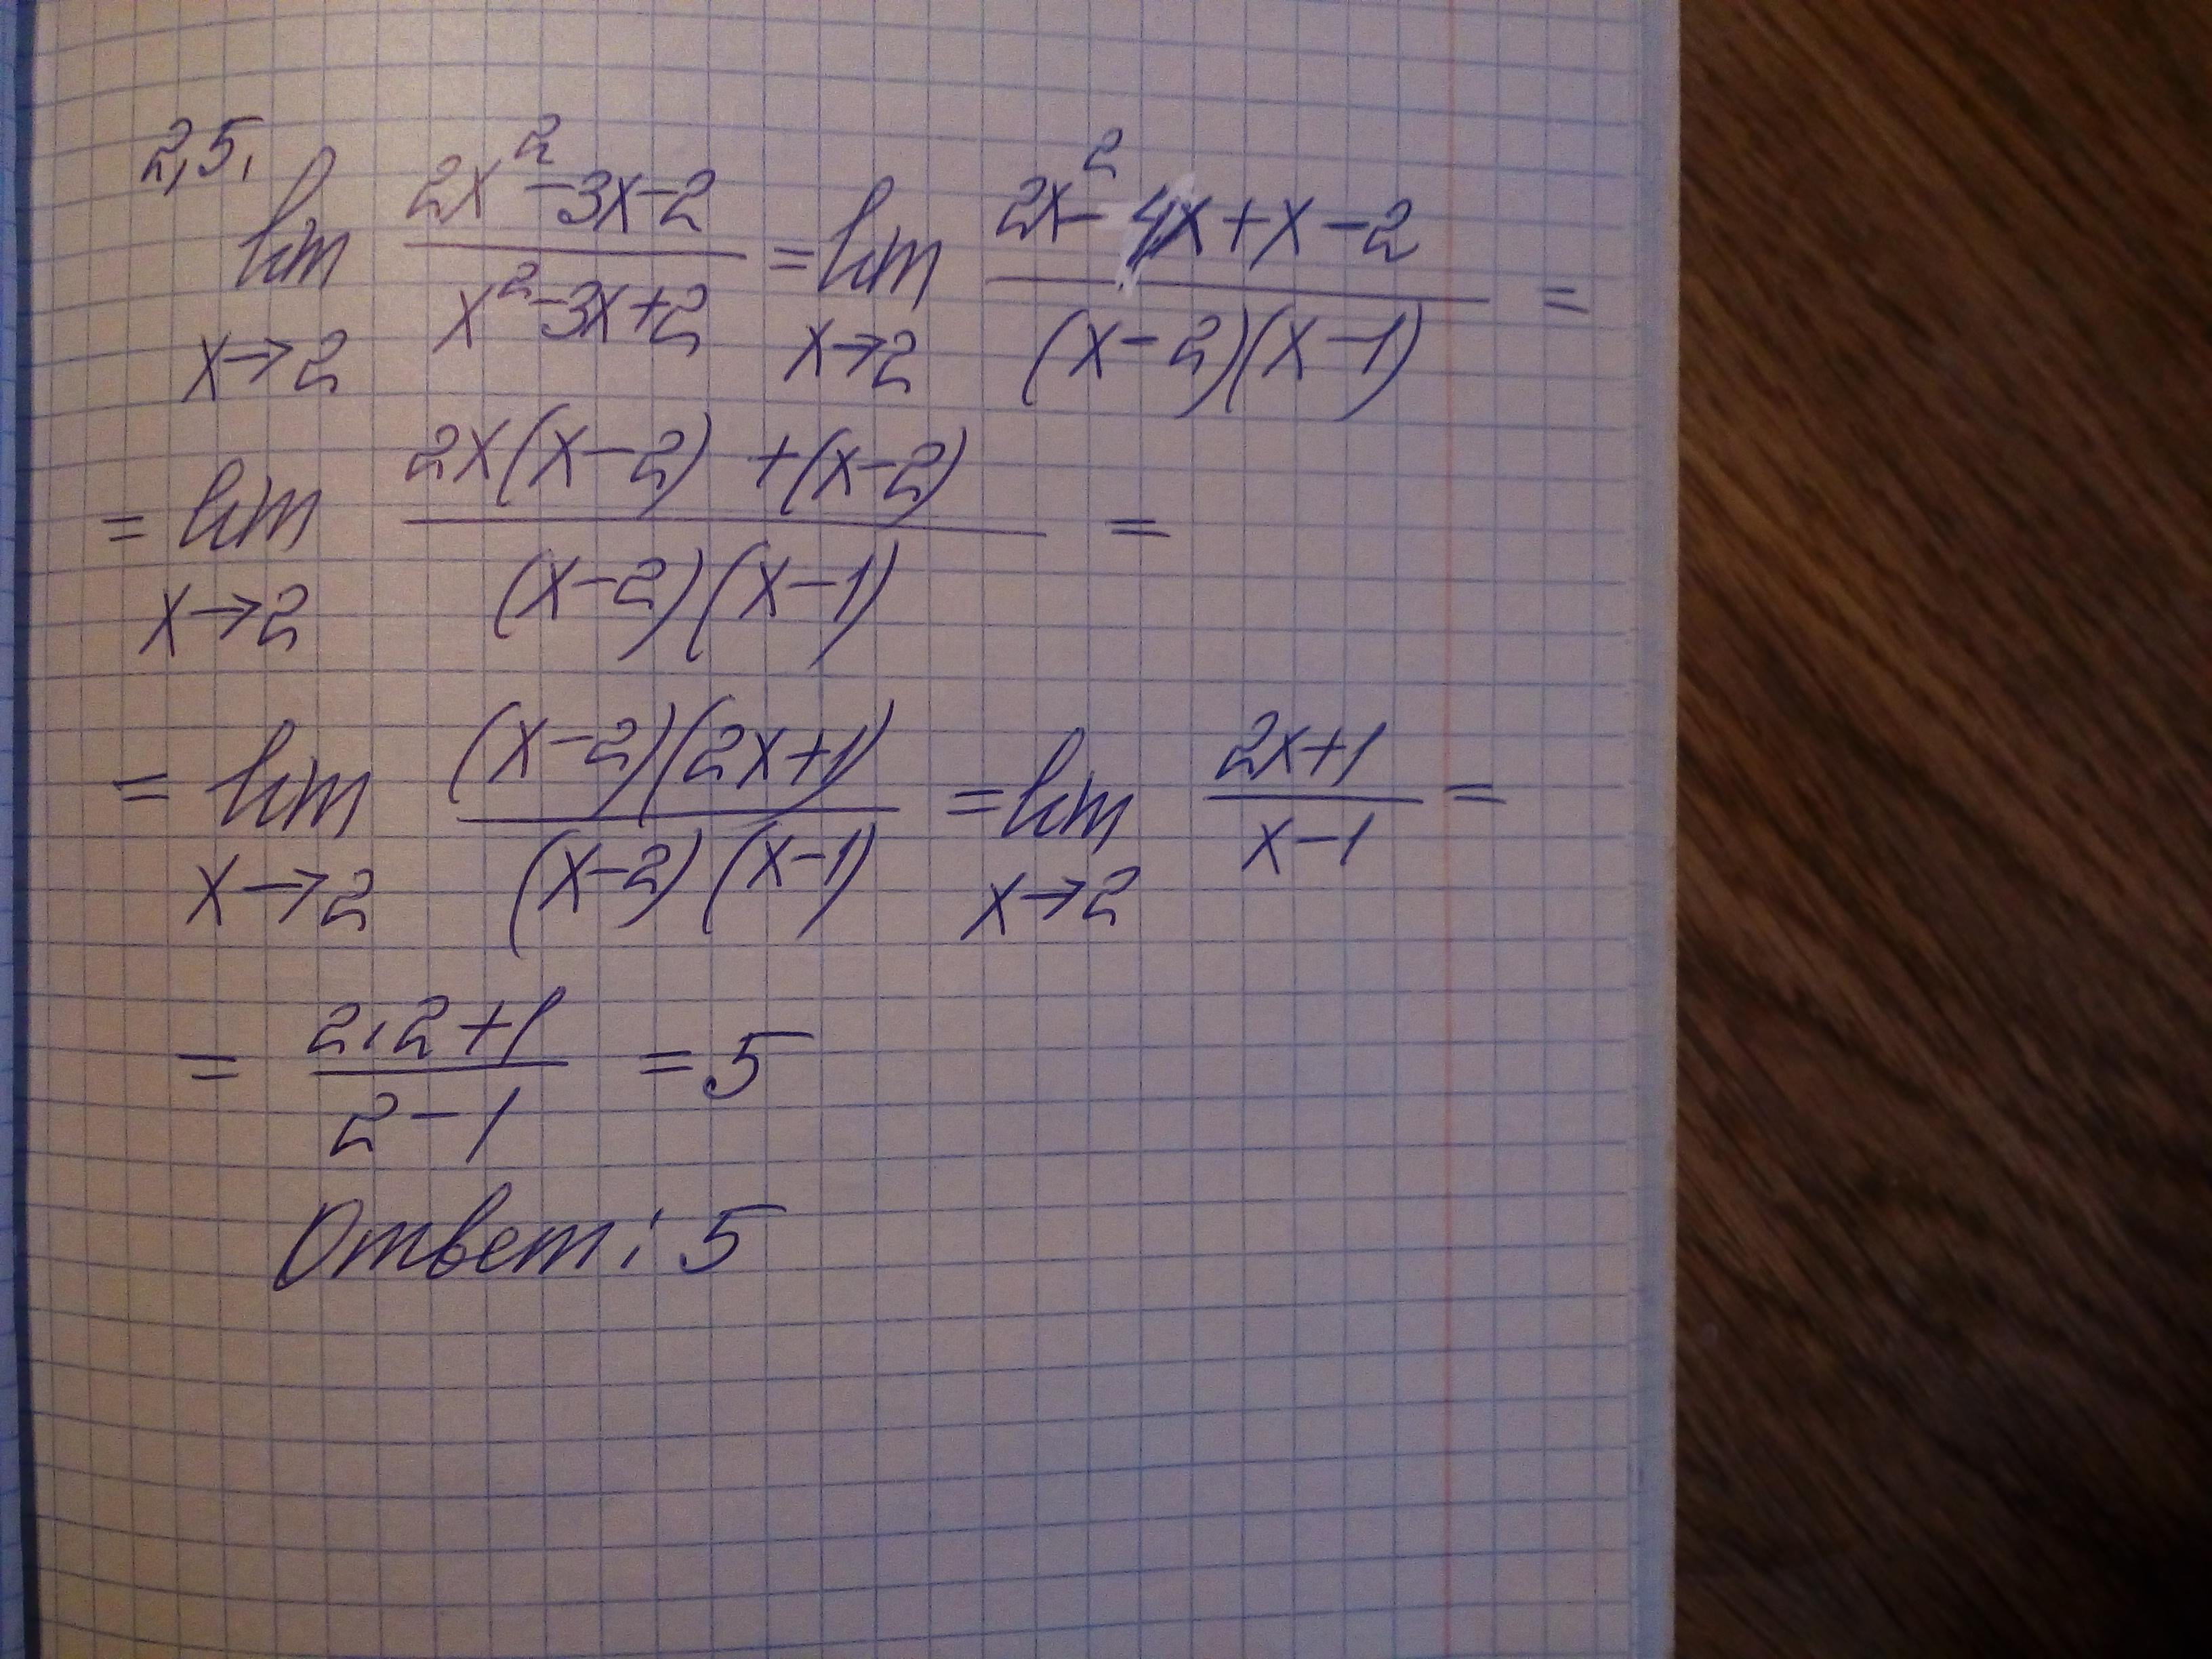 2,5.
lim x→2 (2x² -3x-2)/(x²-3x+2) = lim x→2 (2x² - 4x+x-2)/((x-2)(x-1)) =
= lim x→2 (2x(x-2) +(x-2))/((x-2)(x-1)) =
= lim x→2 ((x-2)(2x+1))/((x-2)(x-1)) = lim x→2 (2x+1)/(x-1) =
= (2·2+1)/(2-1) = 5
Ответ: 5